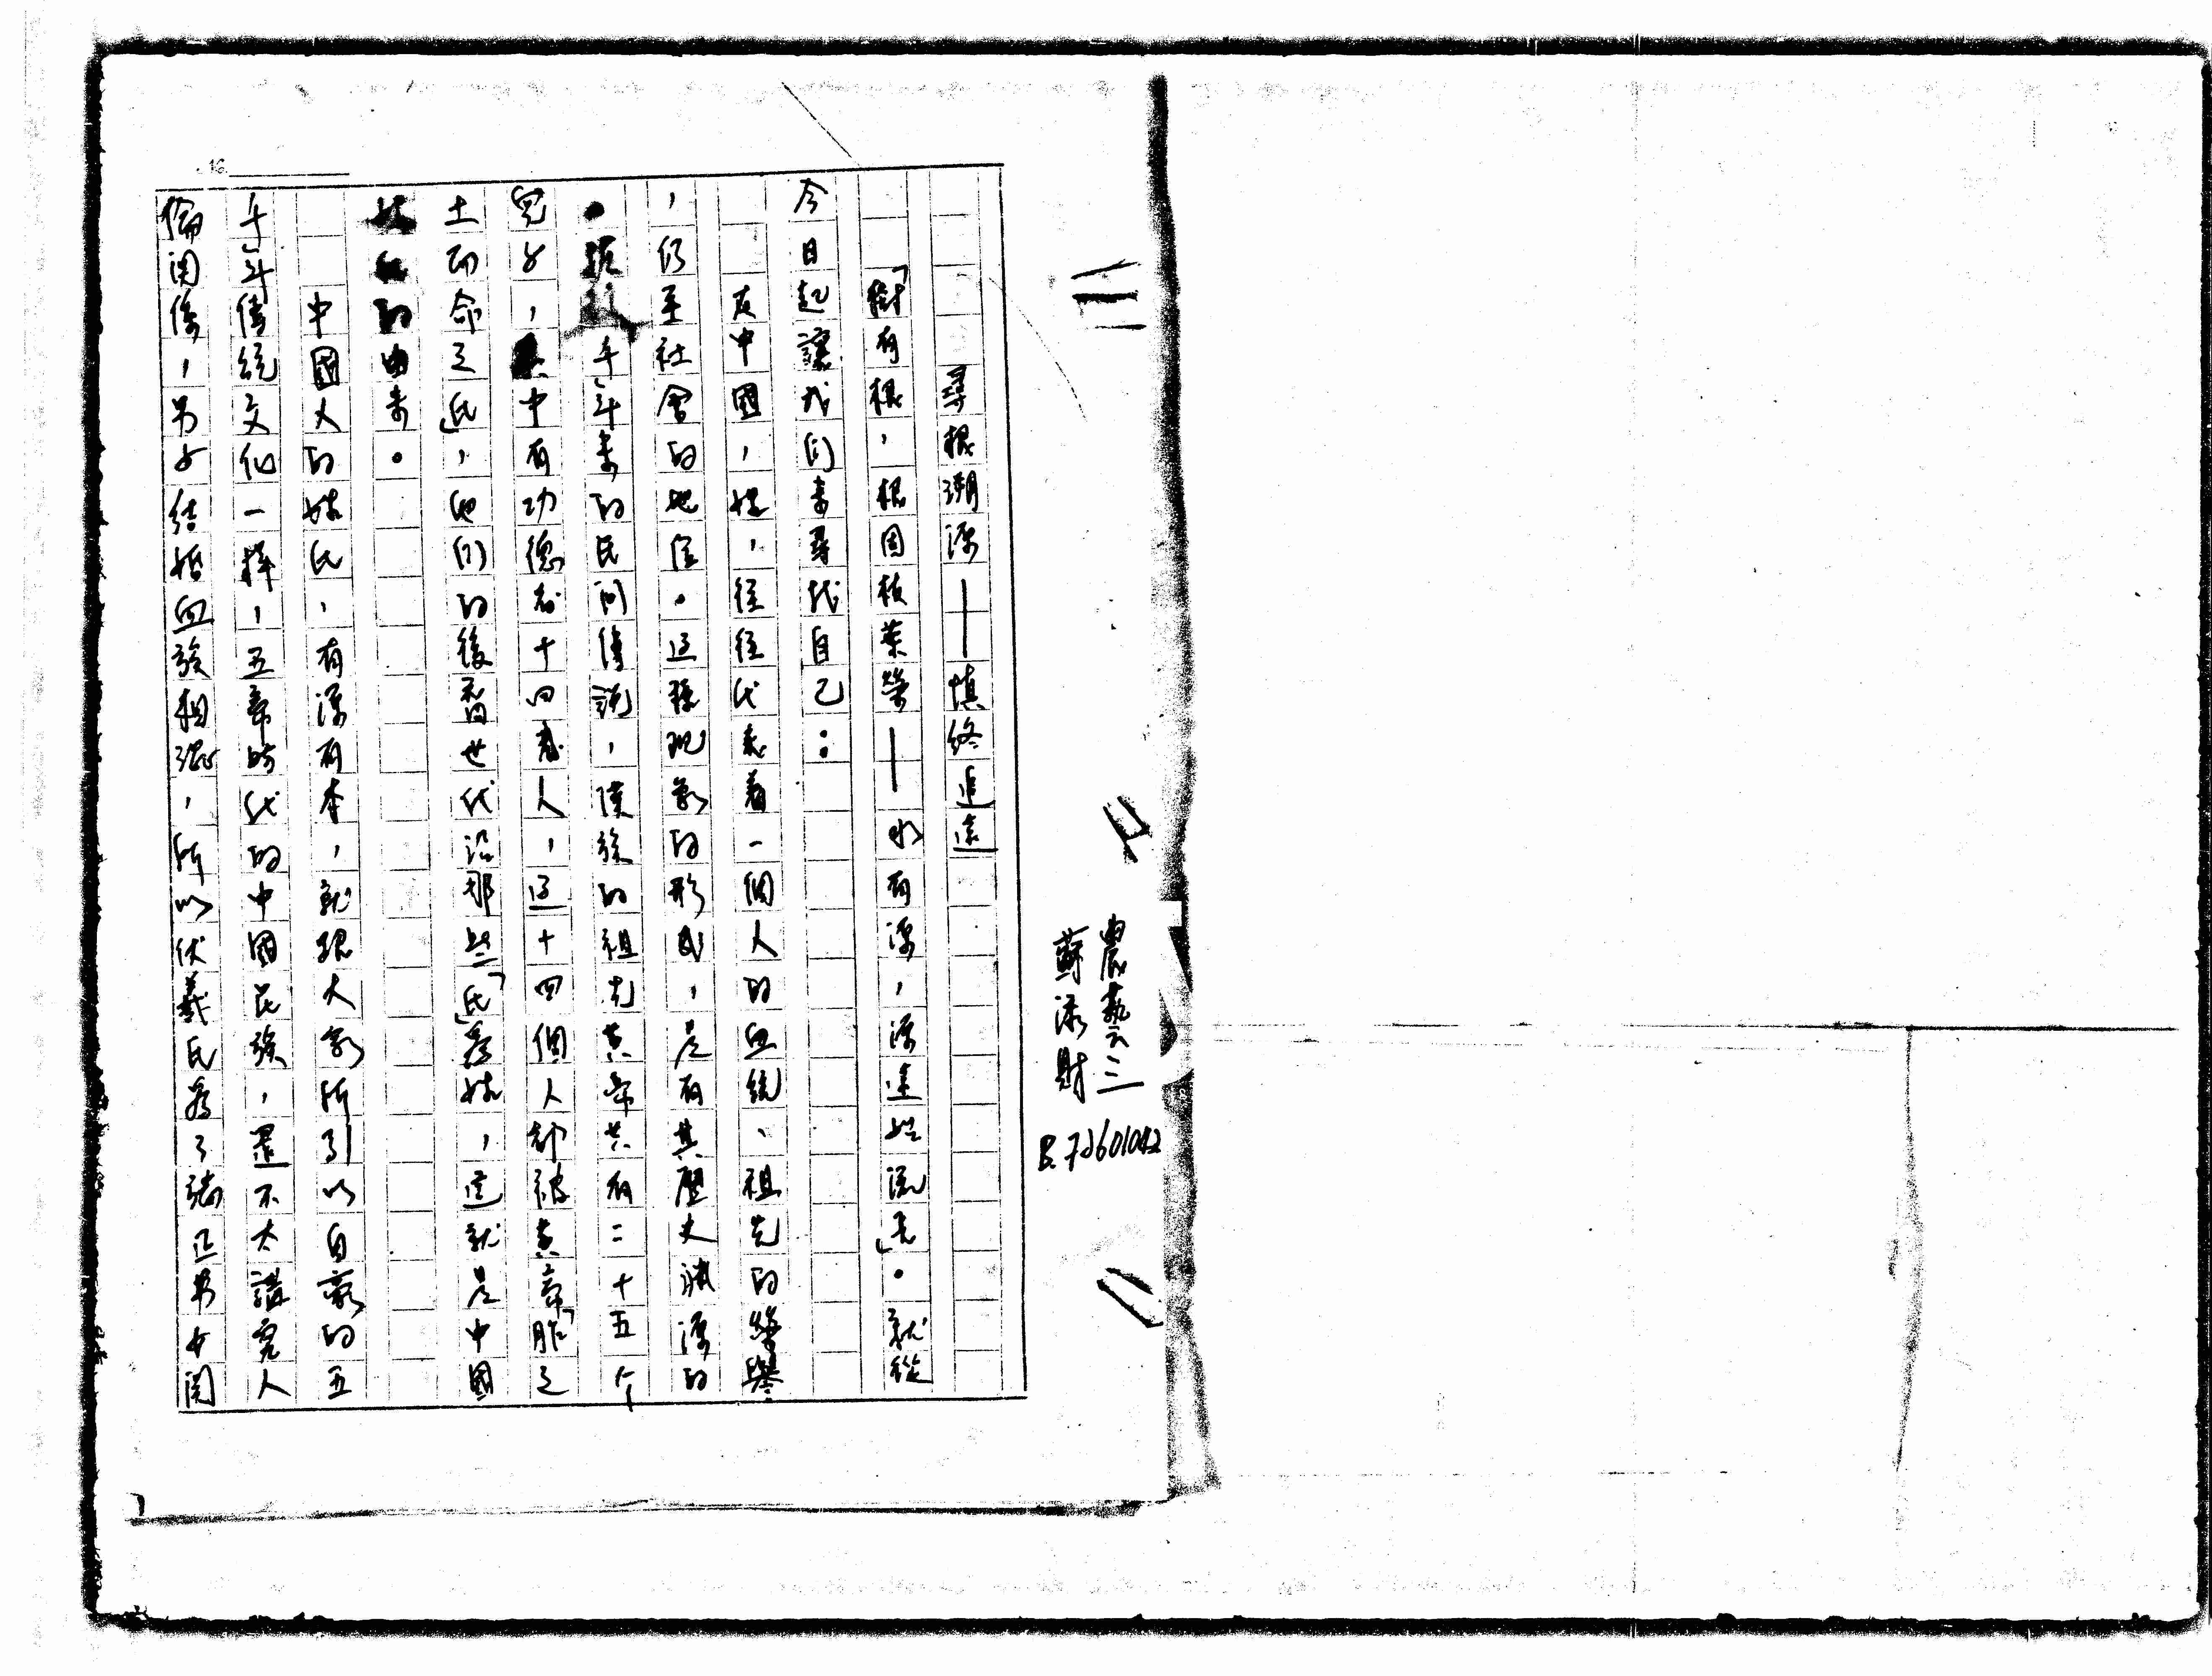 農藝三
蘇添財
B.72601042
尋根溯源——慎終追遠
「樹有根,根固枝葉榮——水有源,源遠始流長」。就從
今日起讓我们来尋找自己:
在中國,姓,往往代表着一個人的血統、祖先的榮譽
,仍至社會的地位。這種現象的形成,是有其歷史淵源的
。 千年来的民间傳說,漢族的祖先黄帝共有二十五个
兒女,其中有功德者十四惫人,這十四個人都被黄帝「胙之
土而命之氏」,他们的後裔世代沿那些「氏」為姓,這就是中國
姓的由来。
中國人的姓氏,有源有本,就跟人家所引以自豪的五
千年傳統文化一樣,五帝時代的中國民族,還不太講究人
倫関係,男女結婚血族相混,所以伏羲氏為了端正男女関
16